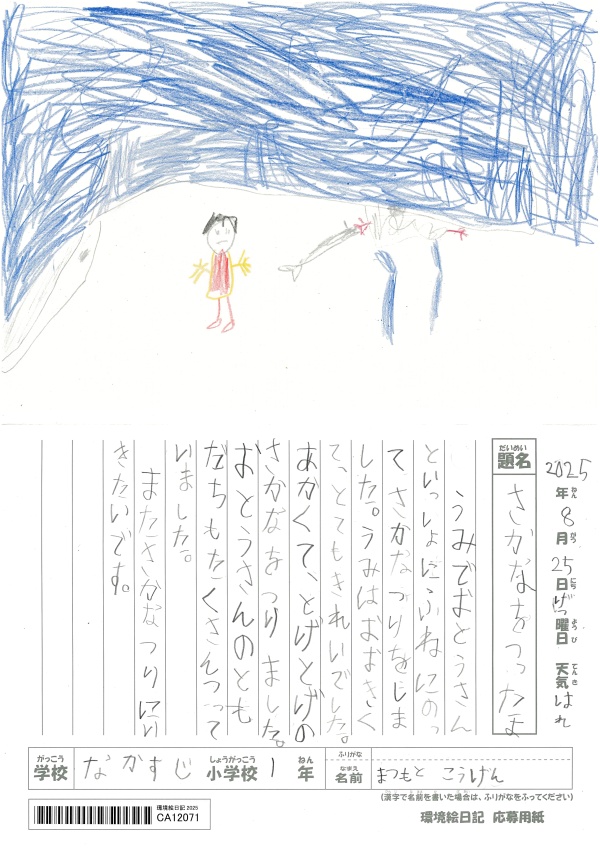 2025年8月25日げつ曜日 天気はれ
ねん がつ にち ようび てんき
だいめい
題名
さかなをつったよ
うみでおとうさん
といっしょにふねにのっ
てさかなづりをしま
した。うみはおおきく
てとてもきれいでした。
あかくて、とげとげの
さかなをつりました。
おとうさんのとも
だちもたくさんつって
いました。
またさかなつりにい
きたいです。
がっこう しょうがっこう ねん
学校 なかすじ 小学校 1年
ふりがな
なまえ
名前 まつもと こうげん
(漢字で名前を書いた場合は、ふりがなをふってください)
環境絵日記 応募用紙
環境絵日記 2025
CA12071